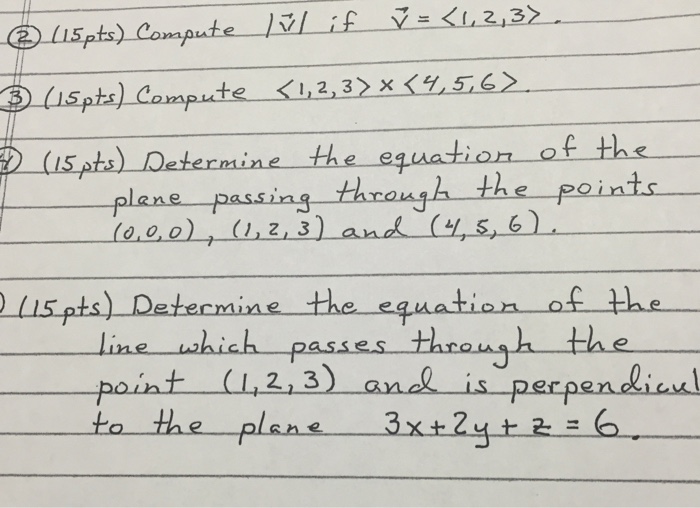 ② (15pts) Compute |v⃗| if v⃗ = <1,2,3>.
③ (15pts) Compute <1,2,3> x <4,5,6>.
(15pts) Determine the equation of the
plane passing through the points
(0,0,0), (1,2,3) and (4,5,6).
(15pts) Determine the equation of the
line which passes through the
point (1,2,3) and is perpendicul
to the plane 3x+2y+z=6.